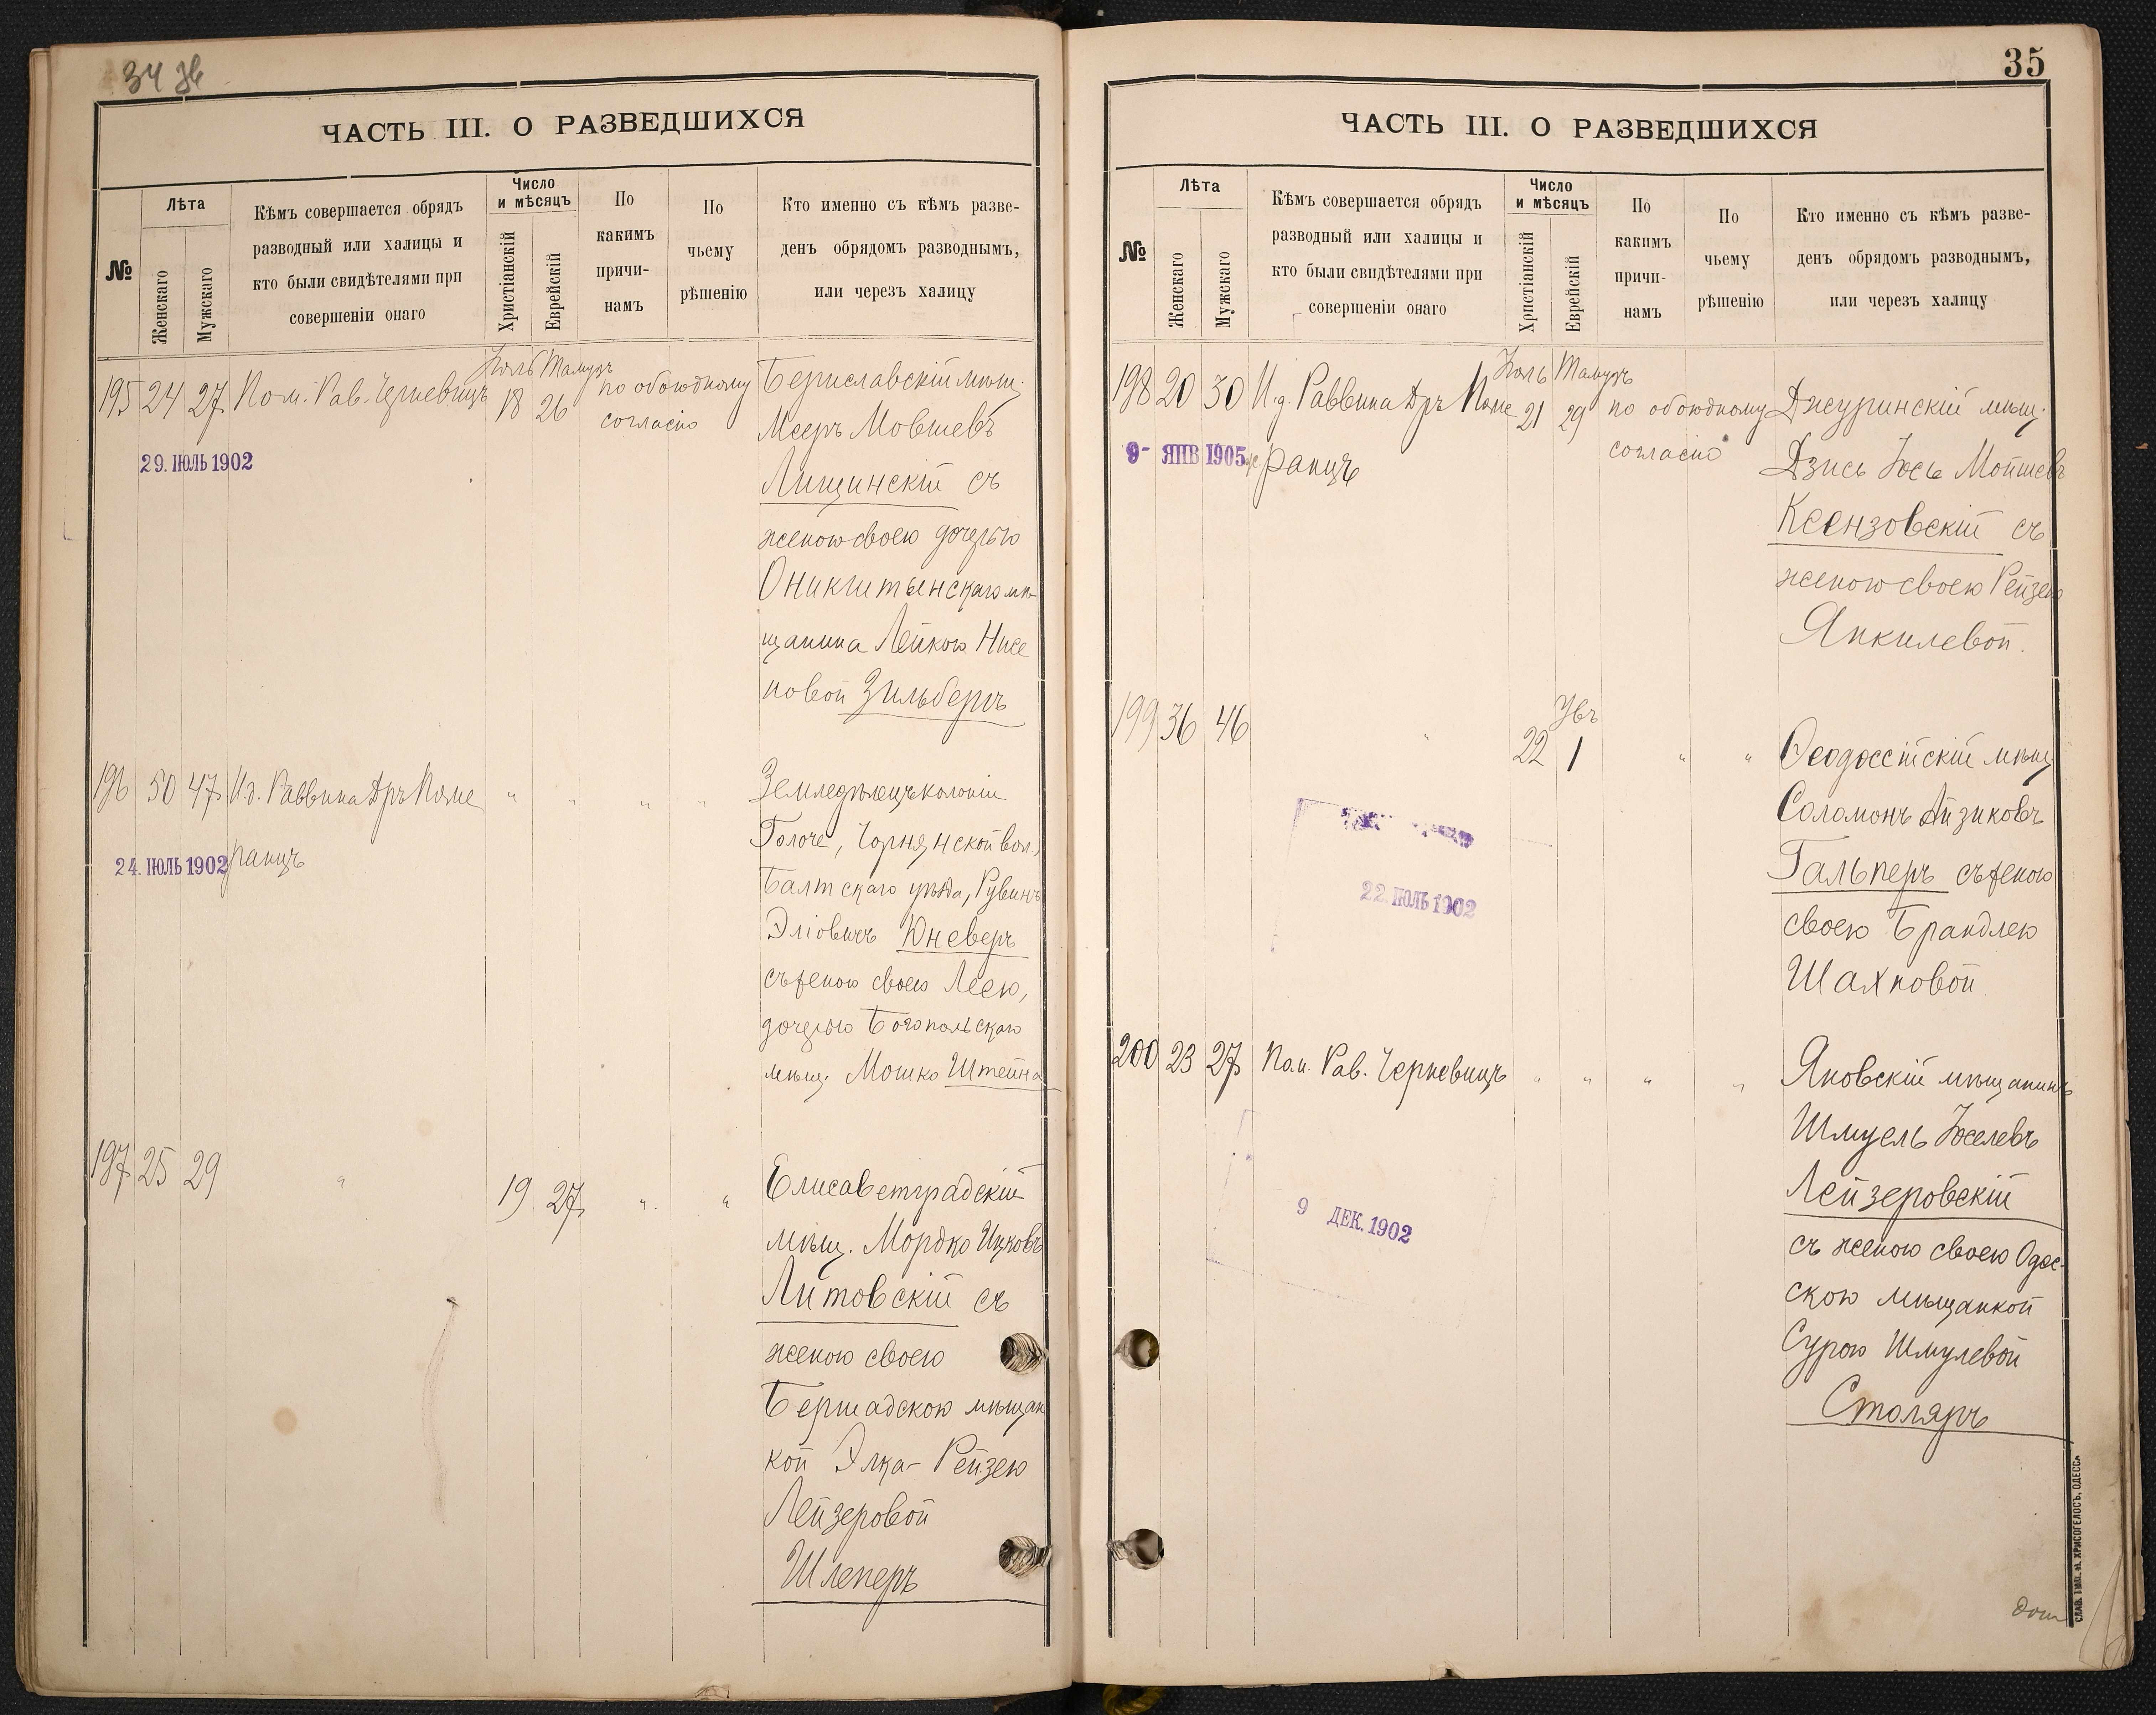 34 зв
ЧАСТЬ III. О РАЗВЕДШИХСЯ
№
Лѣта
Женскаго
Мужскаго
Кѣмъ совершается обрядъ
разводный или халицы и
кто были свидѣтелями при
совершеніи онаго
Число
и мѣсяцъ
Христіанскій
Еврейскій
По
какимъ
причи-
намъ
По
чьему
рѣшенію
Кто именно съ кѣмъ разве-
денъ обрядомъ разводнымъ,
или черезъ халицу
Іюль Тамузъ
195 24 27 Пом. Рав. Черневицъ 18 26 по обоюдному
согласію
29. ІЮЛЬ 1902
Бериславскій мѣщ.
Мееръ Мовшевъ
Лищинскій съ
женою своею дочерью
Оникштынскаго мѣ-
щанина Лейкою Нисе
новой Зильберъ
196 50 47 И.д. Раввина Дръ Поме " " " "
ранцъ
24. ІЮЛЬ 1902
Земледѣлецъ колоніи
Голоче, Чорнянской вол.,
Балтскаго уѣзда, Рувинъ
Эліовичъ Юневеръ
съ женою своею Леею,
дочерью Богопольскаго
мѣщ. Мошко Штейна
197 25 29 " 19 27 " "
Елисаветградскій
мѣщ. Мордко Ицковъ
Литовскій съ
женою своею
Бершадскою мѣщан
кой Элка-Рейзею
Лейзеровой
Шлеперъ
35
ЧАСТЬ III. О РАЗВЕДШИХСЯ
№
Лѣта
Женскаго
Мужскаго
Кѣмъ совершается обрядъ
разводный или халицы и
кто были свидѣтелями при
совершеніи онаго
Число
и мѣсяцъ
Христіанскій
Еврейскій
По
какимъ
причи-
намъ
По
чьему
рѣшенію
Кто именно съ кѣмъ разве-
денъ обрядомъ разводнымъ,
или черезъ халицу
Іюль Тамузъ
198 20 30 И.д. Раввина Дръ Поме 21 29 по обоюдному
ранцъ согласію
9- ЯНВ 1905
Джуринскій мѣщ.
Дзись Іось Мойшевъ
Ксензовскій съ
женою своею Рейзею
Янкилевой.
Увъ
199 36 46 " 22 1 " "
22. ІЮЛЬ 1902
Ѳеодоссійскій мѣщ.
Соломонъ Айзиковъ
Гальперъ съ женою
своею Брандлею
Шахновой
200 23 27 Пом. Рав. Черневицъ " " " "
9 ДЕК. 1902
Яновскій мѣщанинъ
Шмуель Іоселевъ
Лейзеровскій
съ женою своею Одес-
скою мѣщанкой
Сурою Шмулевой
Столяръ
СЛАВ. ТИП. Н. ХРИСОГЕЛОСЪ, ОДЕССА